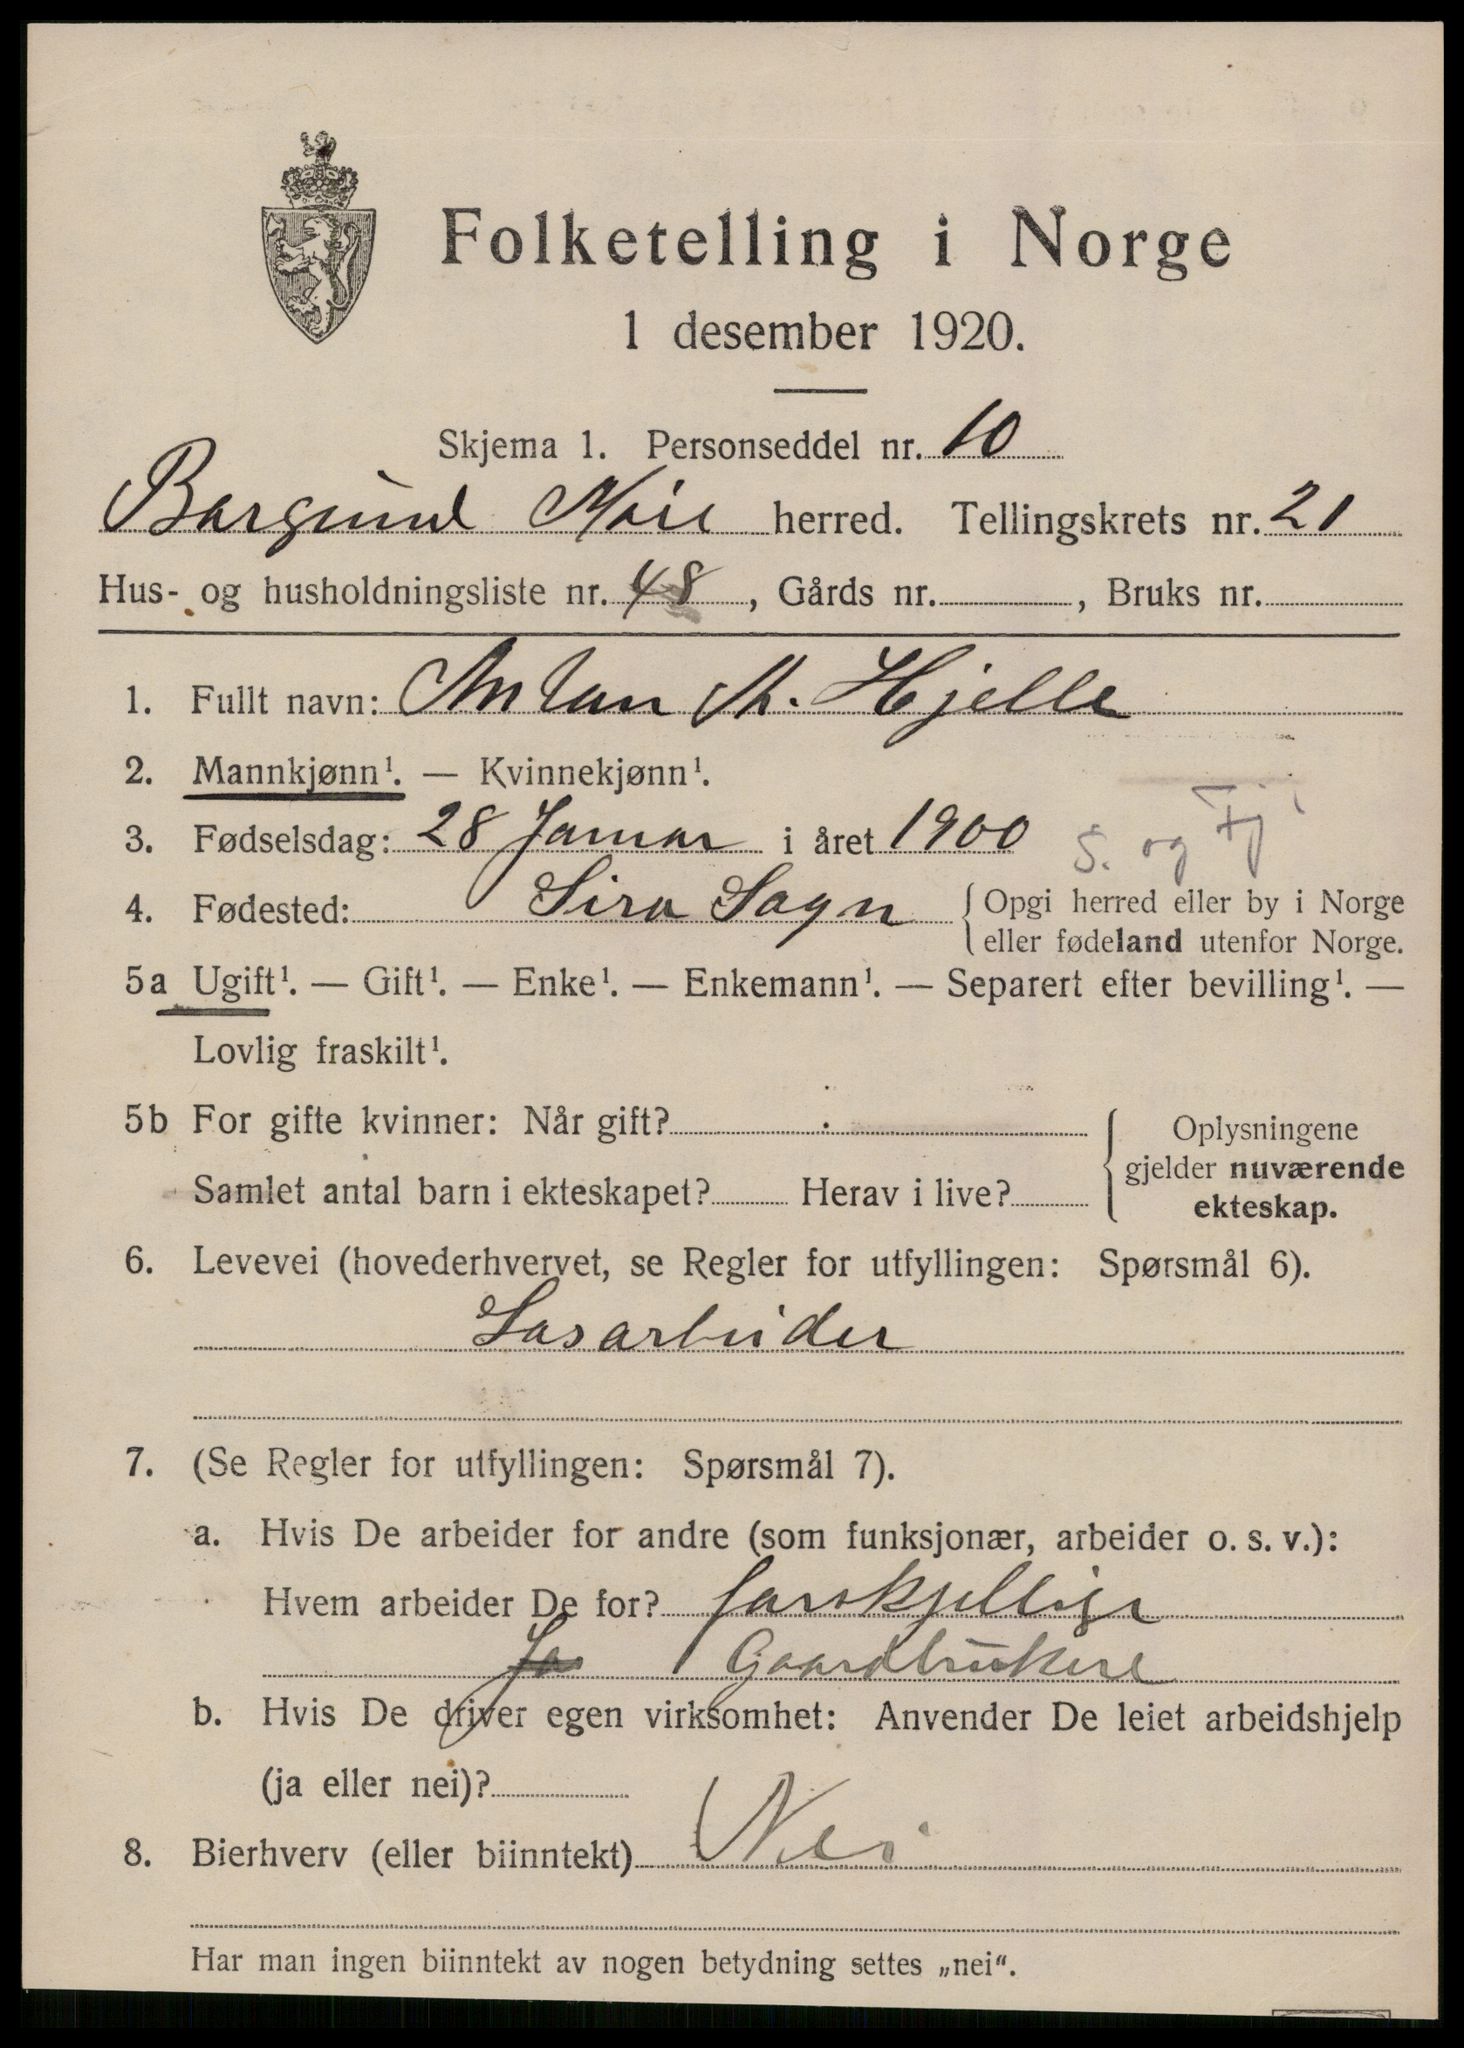 Folketelling i Norge
1 desember 1920.
Skjema 1. Personseddel nr. 10
Borgund Møre herred. Tellingskrets nr. 21
Hus- og husholdningsliste nr. 48, Gårds nr. , Bruks nr.
1. Fullt navn: Anton M. Hjelle
2. Mannkjønn¹. — Kvinnekjønn¹.
3. Fødselsdag: 28 Januar i året 1900
S. og Fj.
4. Fødested: Sira Sogn {Opgi herred eller by i Norge
eller fødeland utenfor Norge.
5a Ugift¹. — Gift¹. — Enke¹. — Enkemann¹. — Separert efter bevilling¹. —
Lovlig fraskilt¹.
5b For gifte kvinner: Når gift?
Samlet antal barn i ekteskapet? Herav i live?
Oplysningene
gjelder nuværende
ekteskap.
6. Levevei (hovederhvervet, se Regler for utfyllingen: Spørsmål 6).
Løsarbeider
7. (Se Regler for utfyllingen: Spørsmål 7).
a. Hvis De arbeider for andre (som funksjonær, arbeider o. s. v.):
Hvem arbeider De for? forskjellige
Ja Gaardbrukere
b. Hvis De driver egen virksomhet: Anvender De leiet arbeidshjelp
(ja eller nei)?
8. Bierhverv (eller biinntekt) Nei
Har man ingen biinntekt av nogen betydning settes „nei“.